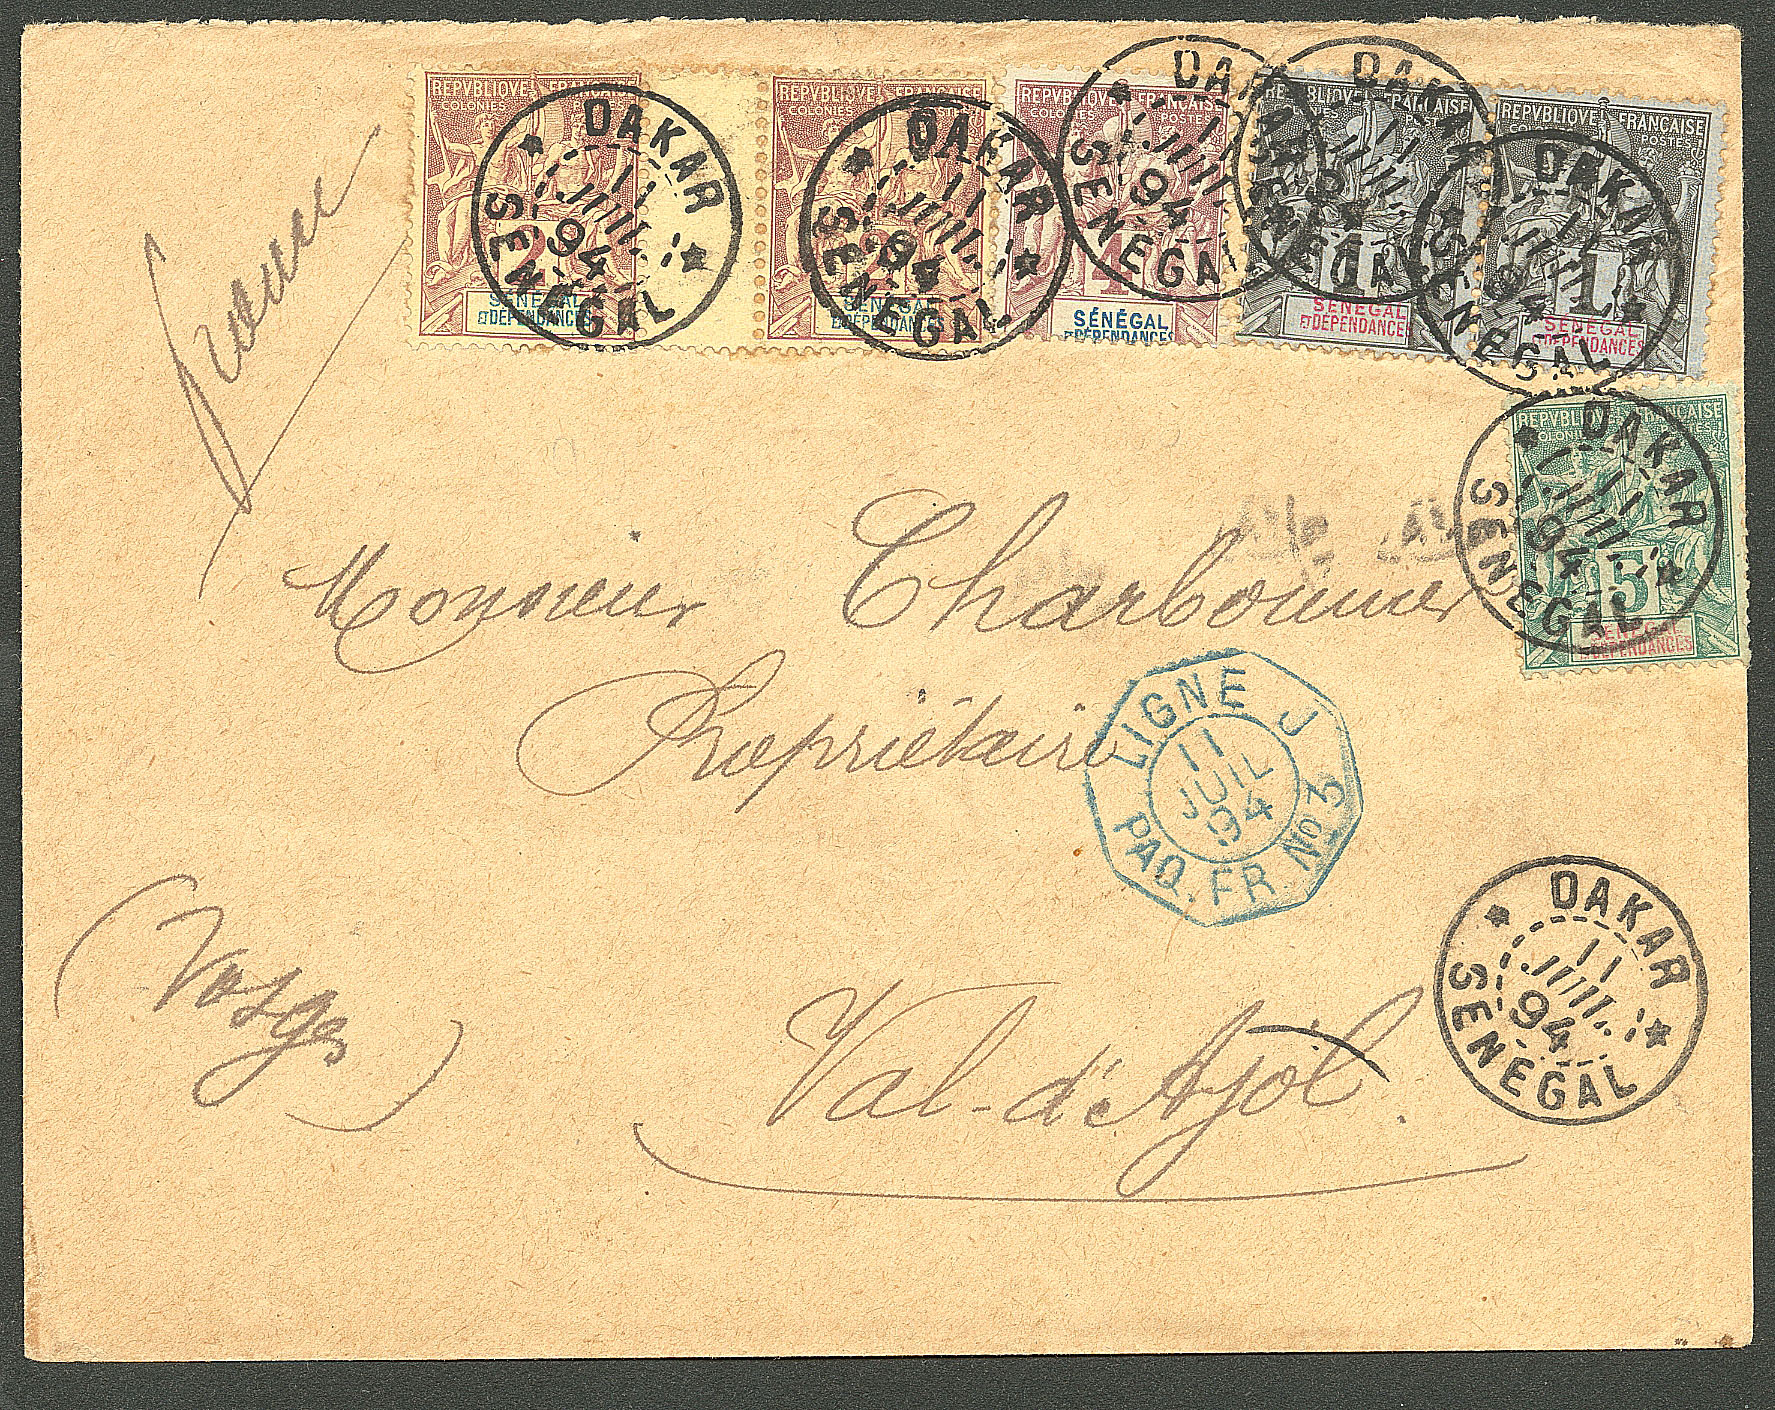 REPVBLIQVE FRANÇAISE
COLONIES
2
SÉNÉGAL
ET DÉPENDANCES
REPVBLIQVE FRANÇAISE
COLONIES
2
SÉNÉGAL
ET DÉPENDANCES
REPVBLIQVE FRANÇAISE
COLONIES POSTES
4
SÉNÉGAL
ET DÉPENDANCES
REPVBLIQVE FRANÇAISE
1
SÉNÉGAL
ET DÉPENDANCES
REPVBLIQVE FRANÇAISE
COLONIES POSTES
1
SÉNÉGAL
ET DÉPENDANCES
REPVBLIQVE FRANÇAISE
COLONIES
5
SÉNÉGAL
ET DÉPENDANCES
DAKAR
11
JUIL.
94
SENEGAL
DAKAR
11
JUIL.
94
SENEGAL
DAKAR
11
JUIL.
94
SENEGAL
DAKAR
11
JUIL.
94
SENEGAL
DAKAR
11
JUIL.
94
SENEGAL
DAKAR
11
JUIL.
94
SENEGAL
france
Monsieur Charbonnier
Propriétaire
LIGNE J
11
JUIL
94
PAQ. FR. No 3
Vosges
Val-d'Ajol.
DAKAR
11
JUIL.
94
SENEGAL